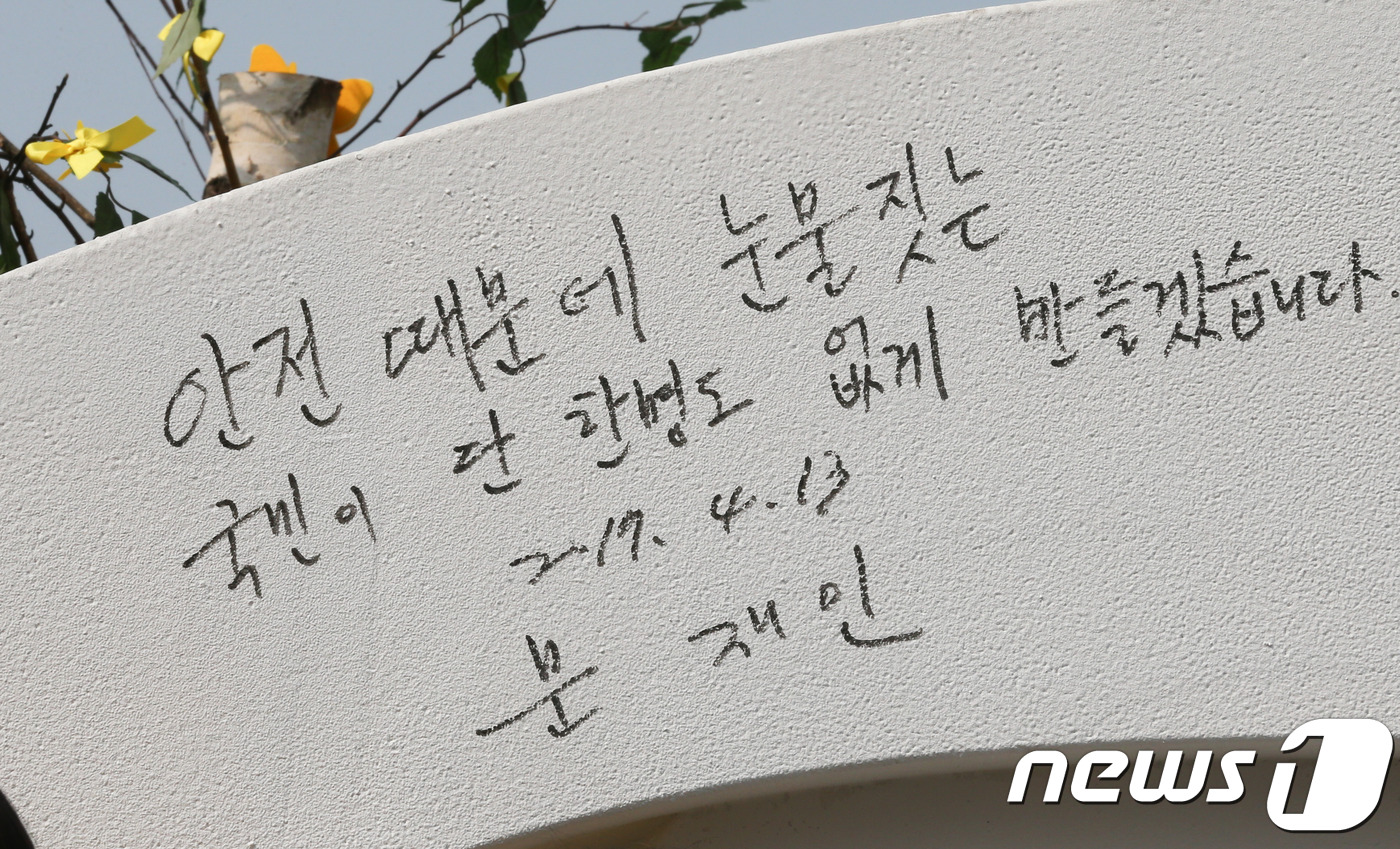 안전 때문에 눈물짓는
국민이 단 한명도 없게 만들겠습니다.
2017. 4. 13
문 재 인
news1